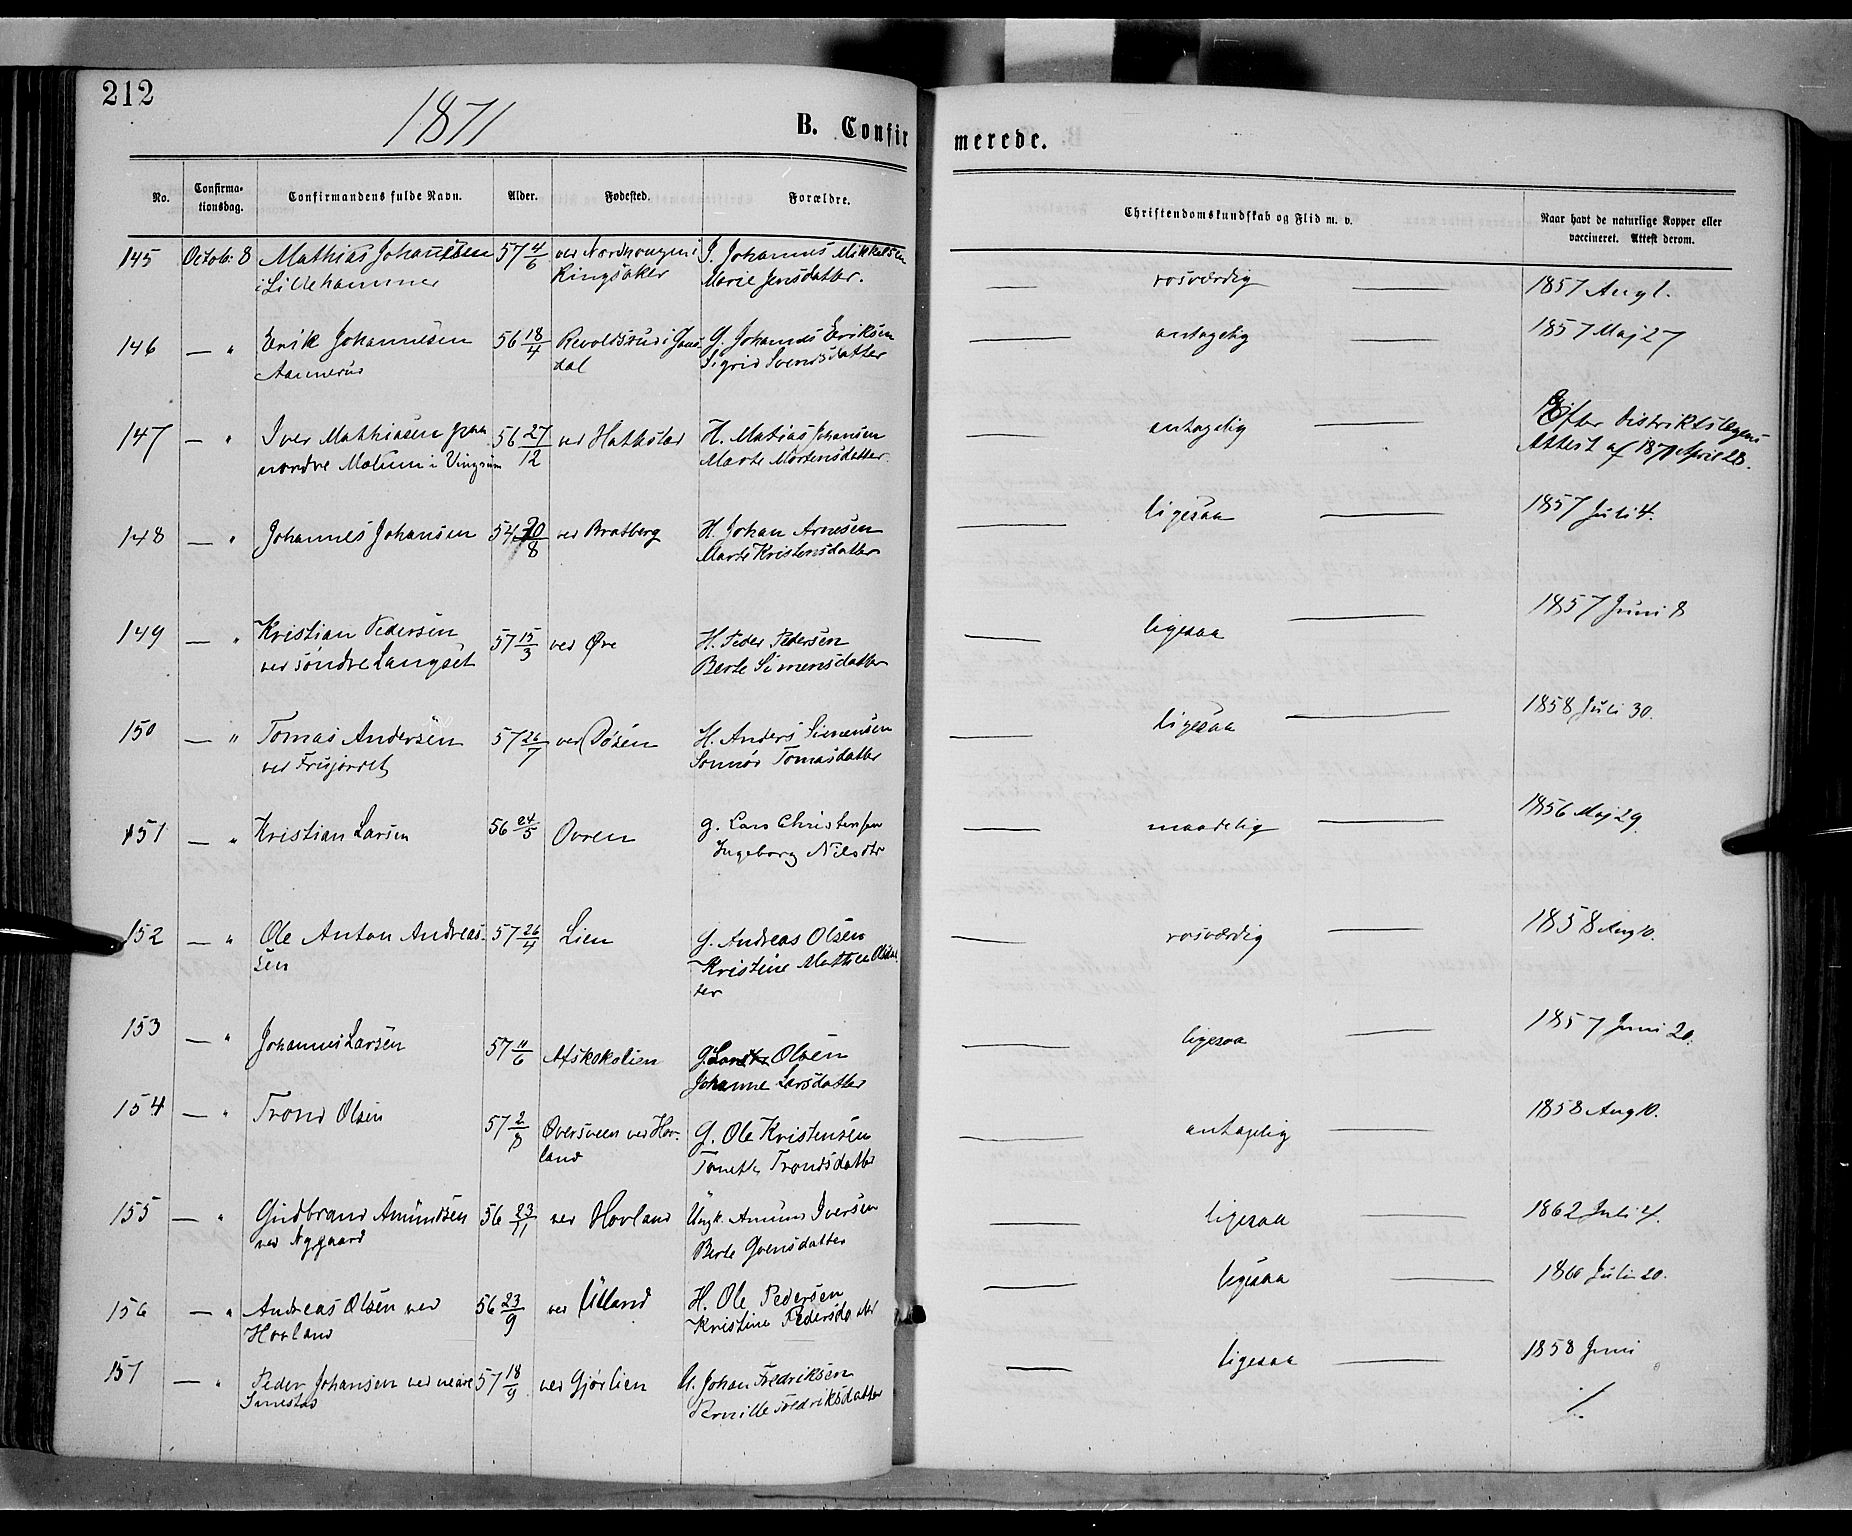 212
1871
B. Confir merede.
No. Confirma- tionsdag. Confirmandens fulde Navn. Alder. Fødested. Forældre. Christendomskundskab og Flid m. v. Naar havt de naturlige Kopper eller vaccineret. Attest derom.
145 Octob: 8 Mathias Johannesen 57 4/6 ved Nordhougen i G. Johannes Mikkelsen — rosværdig — 1857 Aug 1.
i Lillehammer Ringsaker Marie Jensdatter.
146 — " Erik Johannesen 56 18/4 i Gaus- G. Johannes Eriksen — antagelig — 1857 Maj 27
Aannerud dal Sigrid Svendsdatter
147 — " Iver Mathiasen paa 56 27/12 ved Hatkstad H. Matias Johansen — antagelig — Efter Distriktslægens
nordre Mælum i Vingrum Marte Mortensdatter. Attest af 1871 April 28.
148 — " Johannes Johansen 54 20/8 ved Bratberg H. Johan Arnesen — ligesaa — 1857 Juli 4.
Marte Kristensdatter
149 — " Kristian Pedersen 57 15/3 ved Øvre H. Peder Pedersen — ligesaa — 1857 Juni 8
ved søndre Langset Berte Simensdatter
150 — " Tomas Andersen 57 26/7 ved Døsen H. Anders Simensen — ligesaa — 1858 Juli 30.
ved Frujordet Tomasdatter
151 — " Kristian Larsen 56 24/5 Ovren g. Lars Christensen — maadelig — 1856 Maj 29.
Ingeborg Nilsdtr
152 — " Ole Anton Andreas- 57 26/4 Lien G. Andreas Olsen — rosværdig — 1858 Aug 10.
sen Kristine Mathea Olsdat-
ter
153 — " Johannes Larsen 57 11/6 Afskokalien G. Lars Olsen — ligesaa — 1857 Juni 20.
Johanne Larsdatter
154 — " Trond Olsen 57 2/8 Oversveen ved Hov- G. Ole Kristensen — antagelig — 1858 Aug 10.
land Tonette Trondsdatter
155 — " Gudbrand Amundsen 56 23/11 ved Hovland Ungk. Amund Iversen — ligesaa — 1862 Juli 4.
ved Nygaard Berte Svensdatter
156 — " Andreas Olsen ved 56 23/9 ved Ulland H. Ole Pedersen — ligesaa — Juli 20.
Hovland Kristine Pedersdatter
157 — " Peder Johansen ved nedre 57 18/9 ved Gjørlien U. Johan Fredriksen — ligesaa — 1858 Juni
Simestad Pernille Fredriksdatter